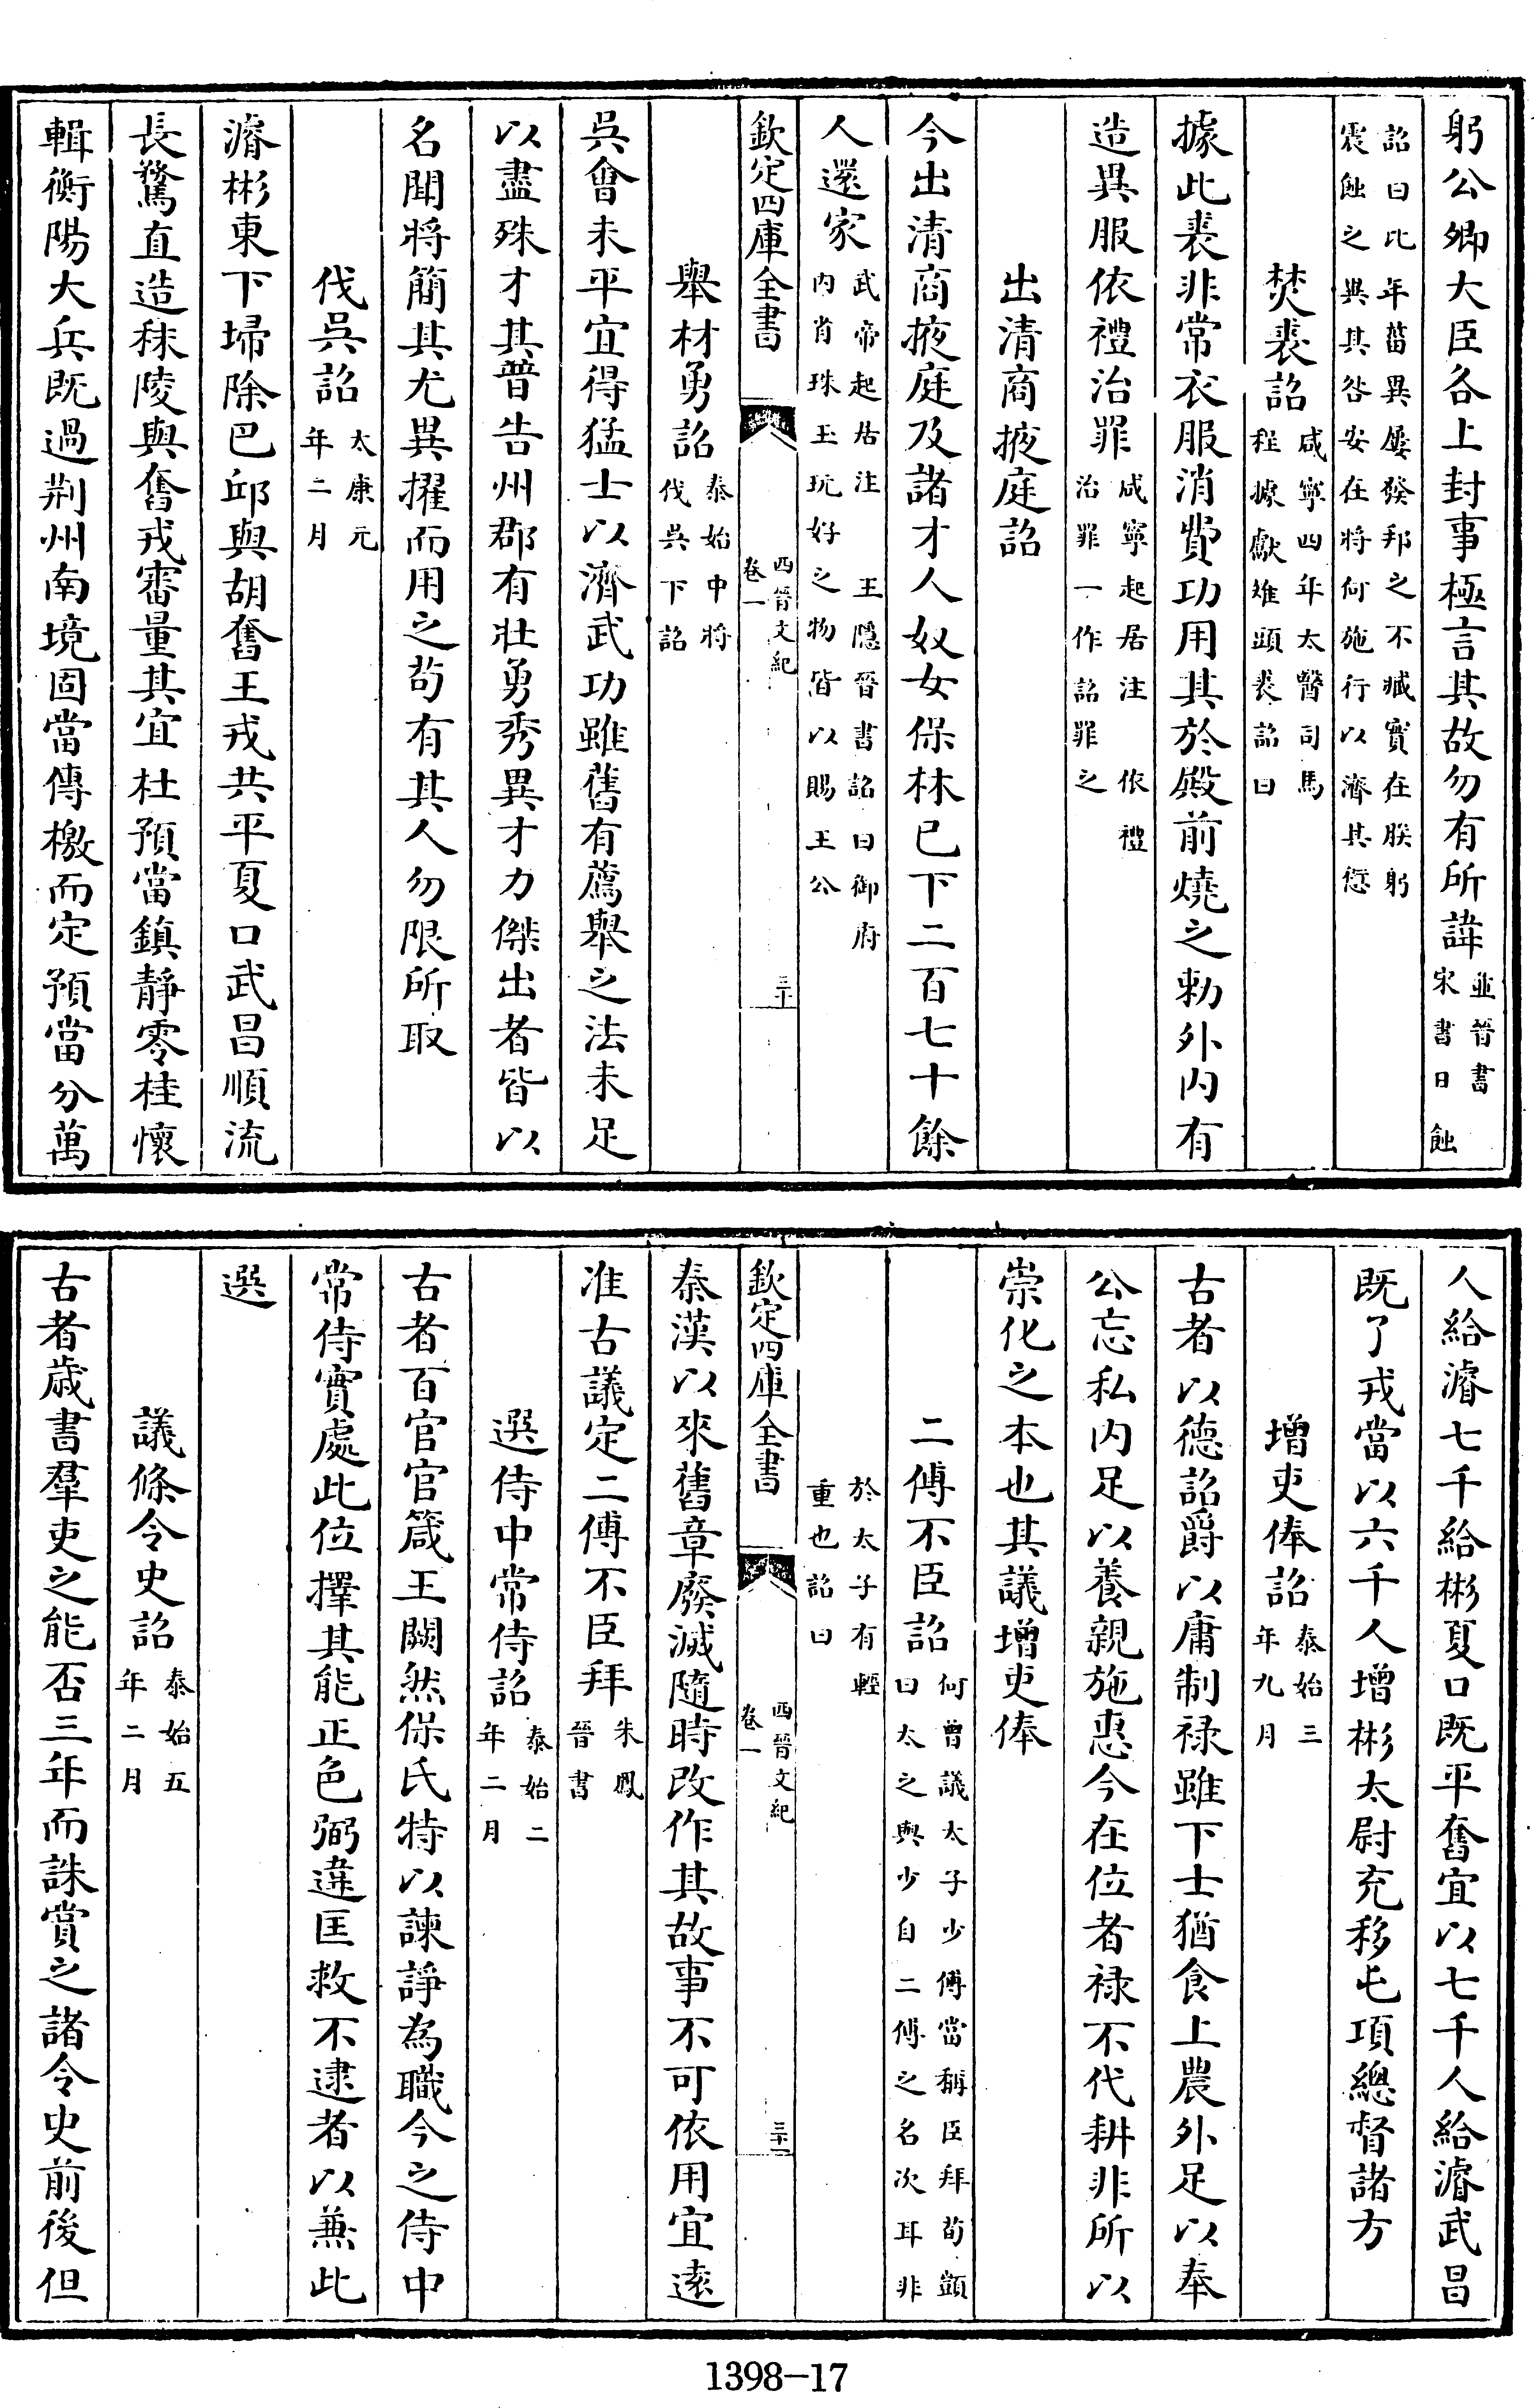 躬公卿大臣各上封事極言其故勿有所諱並晉書宋書日蝕
詔曰比年舊異屢發邦之不臧實在朕躬震蝕之異其咎安在將何施行以濟其愆
焚裘詔咸寧四年太醫司馬程據獻雉頭裘詔曰
據此裘非常衣服消費功用其於殿前燒之勅外内有
造異服依禮治罪咸寧起居注 依禮治罪一作詔罪之
出清商掖庭詔
今出清商掖庭及諸才人奴女保林已下二百七十餘
人還家武帝起居注 王隱晉書詔曰御府内省珠玉玩好之物皆以賜王公
欽定四庫全書 西晉文紀 卷一 三十
舉材勇詔泰始中將伐吳下詔
吳會未平宜得猛士以濟武功雖舊有薦舉之法未足
以盡殊才其普告州郡有壯勇秀異才力傑出者皆以
名聞將簡其尤異擢而用之茍有其人勿限所取
伐吳詔太康元年二月
濬彬東下埽除巴邱與胡奮王戎共平夏口武昌順流
長騖直造秣陵與奮戎審量其宜杜預當鎮靜零桂懷
輯衡陽大兵既過荆州南境固當傳檄而定預當分萬
人給濬七千給彬夏口既平奮宜以七千人給濬武昌
既了戎當以六千人增彬太尉充移屯項總督諸方
增吏俸詔泰始三年九月
古者以德詔爵以庸制禄雖下士猶食上農外足以奉
公忘私内足以養親施惠今在位者禄不代耕非所以
崇化之本也其議增吏俸
二傅不臣詔何曾議太子少傅當稱臣拜荀顗曰太之與少自二傅之名次耳非
於太子有輕重也詔曰
欽定四庫全書 西晉文紀 卷一 三十一
秦漢以來舊章廢滅隨時改作其故事不可依用宜遠
准古議定二傅不臣拜朱鳳晉書
選侍中常侍詔泰始二年二月
古者百官官箴王闕然保氏特以諫諍為職今之侍中
常侍實處此位擇其能正色弼違匡救不逮者以兼此
選
議條令史詔泰始五年二月
古者歲書羣吏之能否三年而誅賞之諸令史前後但
1398-17